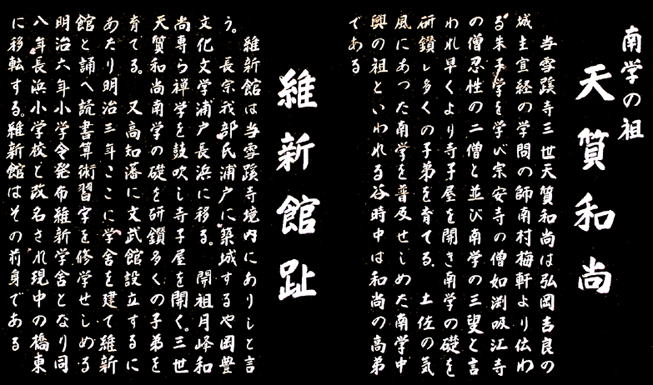 南学の祖
天質和尚
当雪蹊寺三世天質和尚は弘岡吉良の
城主宣経の学問の師南村梅軒より伝わ
る朱子学を学び宗安寺の僧如渕吸江寺
の僧忍性の二僧と並び南学の三叟と言
われ早くより寺子屋を開き南学の礎を
研鑚し多くの子弟を育てる。土佐の気
風にあった南学を普及せしめた南学中
興の祖といわれる谷時中は和尚の高弟
である
維新館趾
維新館は当雪蹊寺境内にありしと言
う。長宗我部氏浦戸に築城するや岡豊
文化文学浦戸長浜に移る。開祖月峰和
尚専ら禅学を鼓吹し寺子屋を開く。三世
天質和尚南学の礎を研鑚多くの子弟を
育てる。又高知藩に文武館設立するに
あたり明治三年ここに学舎を建て維新
館と誦へ読書算術習字を修学せしめる
明治六年小学令発布維新学舎となり同
八年長浜小学校と改名され現中の橋東
に移転する。維新館はその前身である